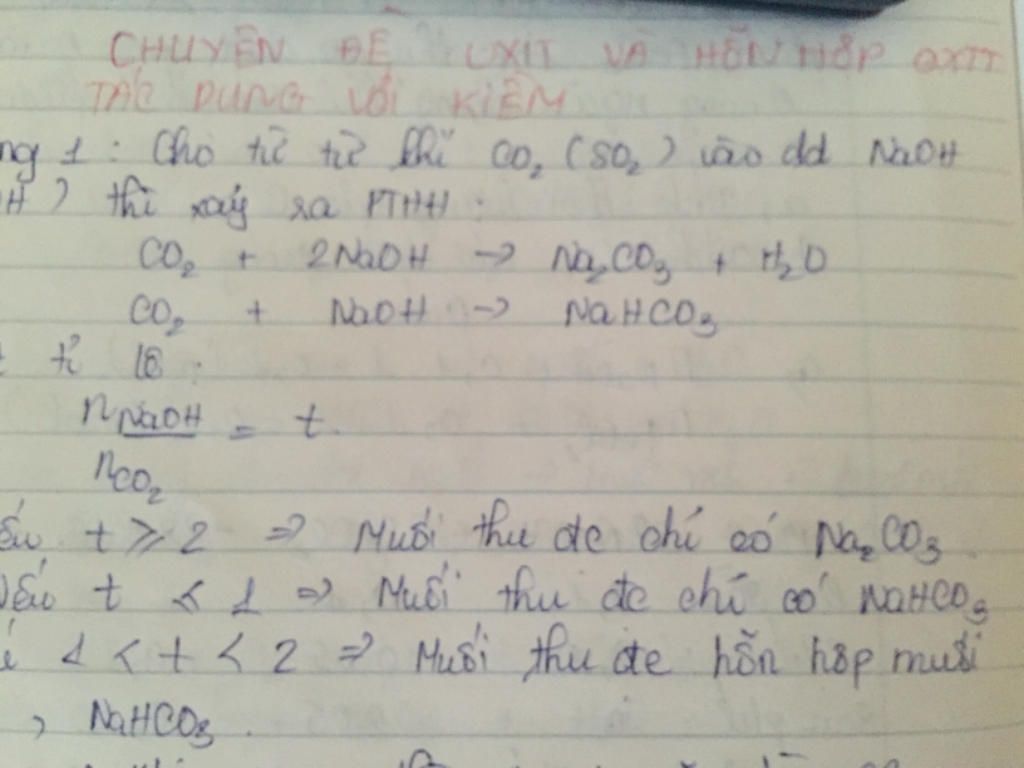 CHUYÊN ĐỀ OXIT VÀ HỖN HỢP OXIT
TÁC DỤNG VỚI KIỀM
ng 1 : Cho từ từ khí CO₂ (SO₂) vào dd NaOH
H) thì xảy ra PTHH :
CO₂ + 2NaOH → Na₂CO₃ + H₂O
CO₂ + NaOH → NaHCO₃
tỉ lệ :
nNaOH = t
nCO₂
ếu t ≥ 2 ⇒ Muối thu đc chỉ có Na₂CO₃.
Nếu t ≤ 1 ⇒ Muối thu đc chỉ có NaHCO₃
1 < t < 2 ⇒ Muối thu đc hỗn hợp muối
, NaHCO₃.